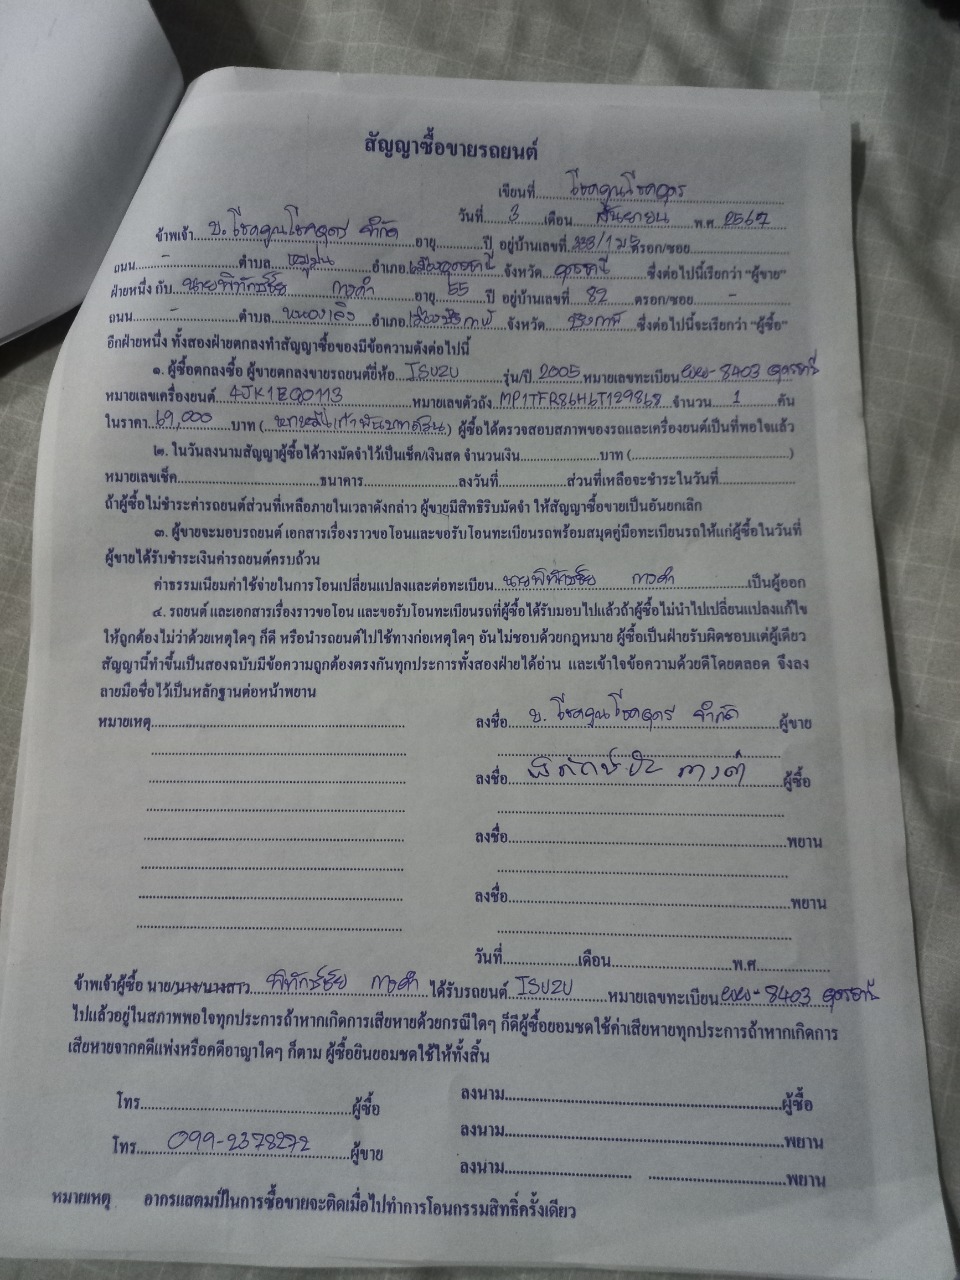 สัญญาซื้อขายรถยนต์
เขียนที่ โชคคูณโชคอุดร
วันที่ 3 เดือน กันยายน พ.ศ 2567
ข้าพเจ้า บ.โชคคูณโชคอุดร จำกัด อายุ ปี อยู่บ้านเลขที่ 338/1 ม.5 ตรอก/ซอย
ถนน - ตำบล หมูม่น อำเภอ เมืองอุดรธานี จังหวัด อุดรธานี ซึ่งต่อไปนี้เรียกว่า "ผู้ขาย"
ฝ่ายหนึ่ง กับ นายพิทักษ์ชัย กางคำ อายุ 55 ปี อยู่บ้านเลขที่ 82 ตรอก/ซอย -
ถนน - ตำบล หนองเลิง อำเภอ เมืองบึงกาฬ จังหวัด บึงกาฬ ซึ่งต่อไปนี้จะเรียกว่า "ผู้ซื้อ"
อีกฝ่ายหนึ่ง ทั้งสองฝ่ายตกลงทำสัญญาซื้อของมีข้อความดังต่อไปนี้
๑. ผู้ซื้อตกลงซื้อ ผู้ขายตกลงขายรถยนต์ยี่ห้อ ISUZU รุ่น/ปี 2005 หมายเลขทะเบียน 8403 อุดรธานี
หมายเลขเครื่องยนต์ 4JK1BQ0113 หมายเลขตัวถัง MP1TFR86H6T129868 จำนวน 1 คัน
ในราคา 69,000 บาท (หกหมื่นเก้าพันบาทถ้วน) ผู้ซื้อได้ตรวจสอบสภาพของรถและเครื่องยนต์เป็นที่พอใจแล้ว
๒. ในวันลงนามสัญญาผู้ซื้อได้วางมัดจำไว้เป็นเช็ค/เงินสด จำนวนเงิน บาท ( )
หมายเลขเช็ค ธนาคาร ลงวันที่ ส่วนที่เหลือจะชำระในวันที่
ถ้าผู้ซื้อไม่ชำระค่ารถยนต์ส่วนที่เหลือภายในเวลาดังกล่าว ผู้ขายมีสิทธิริบมัดจำ ให้สัญญาซื้อขายเป็นอันยกเลิก
๓. ผู้ขายจะมอบรถยนต์ เอกสารเรื่องราวขอโอนและขอรับโอนทะเบียนรถพร้อมสมุดคู่มือทะเบียนรถให้แก่ผู้ซื้อในวันที่
ผู้ขายได้รับชำระเงินค่ารถยนต์ครบถ้วน
ค่าธรรมเนียมค่าใช้จ่ายในการโอนเปลี่ยนแปลงและต่อทะเบียน นายพิทักษ์ชัย กางคำ เป็นผู้ออก
๔. รถยนต์ และเอกสารเรื่องราวขอโอน และขอรับโอนทะเบียนรถที่ผู้ซื้อได้รับมอบไปแล้วถ้าผู้ซื้อไม่นำไปเปลี่ยนแปลงแก้ไข
ให้ถูกต้องไม่ว่าด้วยเหตุใดๆ ก็ดี หรือนำรถยนต์ไปใช้ทางก่อเหตุใดๆ อันไม่ชอบด้วยกฎหมาย ผู้ซื้อเป็นฝ่ายรับผิดชอบแต่ผู้เดียว
สัญญานี้ทำขึ้นเป็นสองฉบับมีข้อความถูกต้องตรงกันทุกประการทั้งสองฝ่ายได้อ่าน และเข้าใจข้อความด้วยดีโดยตลอด จึงลง
ลายมือชื่อไว้เป็นหลักฐานต่อหน้าพยาน
หมายเหตุ ลงชื่อ บ. โชคคูณโชคอุดร จำกัด ผู้ขาย
ลงชื่อ พิทักษ์ชัย กางคำ ผู้ซื้อ
ลงชื่อ พยาน
ลงชื่อ พยาน
วันที่ เดือน พ.ศ
ข้าพเจ้าผู้ซื้อ นาย/นาง/นางสาว พิทักษ์ชัย กางคำ ได้รับรถยนต์ ISUZU หมายเลขทะเบียน 8403 อุดรธานี
ไปแล้วอยู่ในสภาพพอใจทุกประการถ้าหากเกิดการเสียหายด้วยกรณีใดๆ ก็ดีผู้ซื้อยอมชดใช้ค่าเสียหายทุกประการถ้าหากเกิดการ
เสียหายจากคดีแพ่งหรือคดีอาญาใดๆ ก็ตาม ผู้ซื้อยินยอมชดใช้ให้ทั้งสิ้น
โทร ผู้ซื้อ ลงนาม ผู้ซื้อ
โทร 099-2378272 ผู้ขาย ลงนาม พยาน
ลงนาม พยาน
หมายเหตุ อากรแสตมป์ในการซื้อขายจะติดเมื่อไปทำการโอนกรรมสิทธิ์ครั้งเดียว